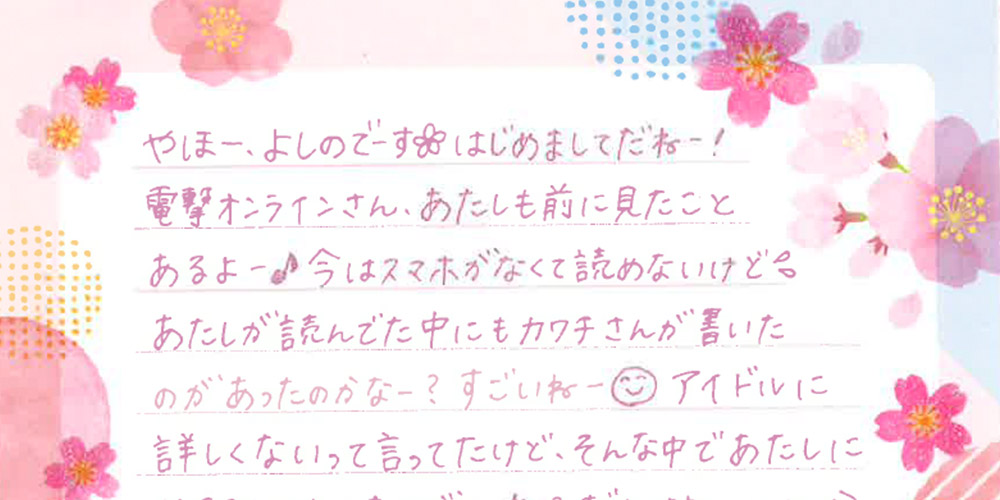 やほー、よしのでーす はじめましてだねー!
電撃オンラインさん、あたしも前に見たこと
あるよー♪今はスマホがなくて読めないけど
あたしが読んでた中にもカワチさんが書いた
のがあったのかなー?すごいねー アイドルに
詳しくないって言ってたけど、そんな中であたしに